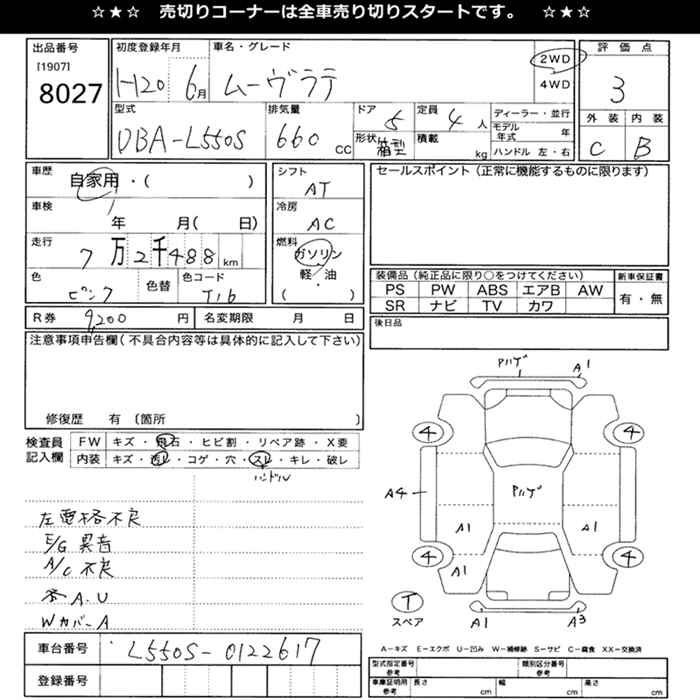 ☆★☆ 売切りコーナーは全車売り切りスタートです。 ☆★☆
出品番号 [1907] 8027
初度登録年月 H20 6月
車名・グレード ムーヴラテ
2WD
4WD
評価点 3
外装 C 内装 B
型式 DBA-L550S
排気量 660 CC
ドア 5
形状 箱型
定員 4人
積載 kg
ディーラー・並行
モデル年式 年
ハンドル 左・右
車歴 自家用・( )
車検 年 月( 日)
走行 7万2千488km
色 ピンク 色替 色コード T16
シフト AT
冷房 AC
燃料 ガソリン
軽・油
( )
セールスポイント(正常に機能するものに限ります)
装備品(純正品に限り○をつけてください)
PS PW ABS エアB AW
SR ナビ TV カワ
新車保証書
有・無
R券 9,200円 名変期限 月 日
後日品
注意事項申告欄(不具合内容等は具体的に記入して下さい)
修復歴 有 (箇所 )
検査員記入欄
FW キズ・飛石・ヒビ割・リペア跡・X要
内装 キズ・汚レ・コゲ・穴・スレ・キレ・破レ
ハンドル
左電格不良
E/G 異音
A/C 不良
A.U
WカバーA
Pハゲ A1
4 4
A4 Pハゲ
A1 A1
4 A1 4
T
スペア
A1 A3
A-キズ E-エクボ U-凹み W-補修跡 S-サビ C-腐食 XX-交換済
車台番号 L550S-0122617
登録番号
型式指定番号 参考
類別区分番号 参考
車庫証明用 参考
長さ cm 幅 cm 高さ cm